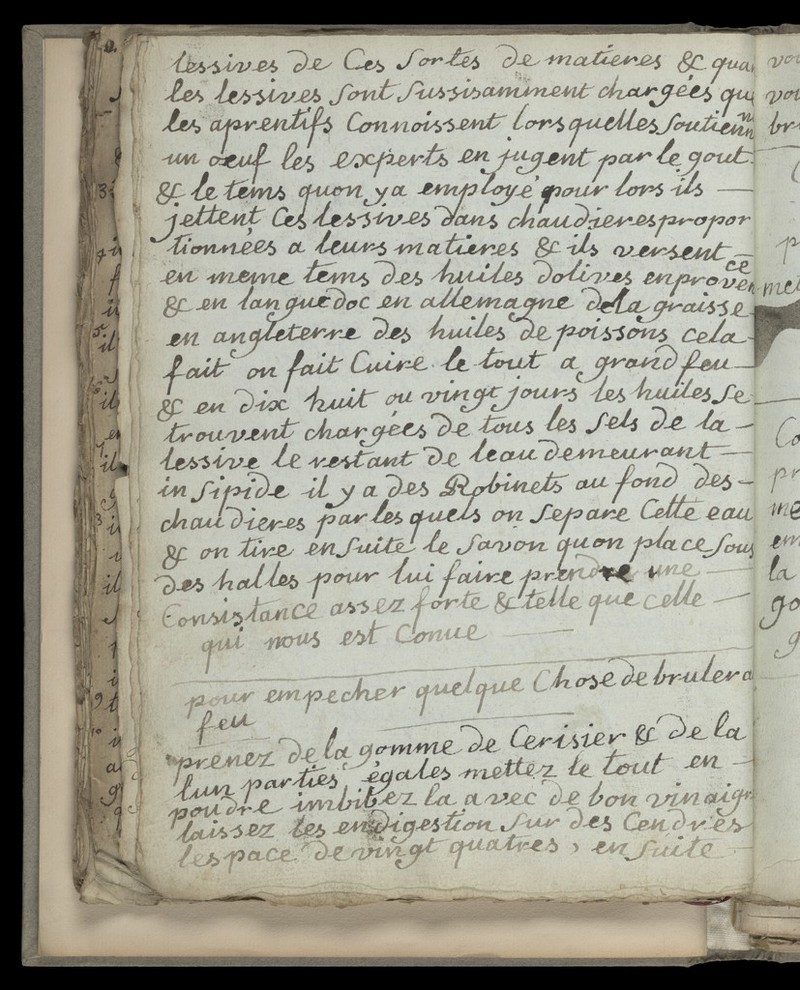 lessives de Ces sortes de matieres & qua
les lessives sont sussisamment chargées qu
les aprentifs Connoissent lorsquelles soutienn
un œuf les experts en jugent par le gout
& le tems quon y a employé pour lors ils —
jettent Ces lessives dans chaudieres propor
tionnées a leurs matieres & ils versent —
en meme tems des huiles dolives en provence
& en languedoc en allemagne de la graisse
en angleterre des huiles de poissons cela
fait on fait Cuire le tout a grand feu —
& en dix huit ou vingt jours les huiles se
trouvent chargées de tous les sels de la -
lessive le restant de leau demeurant —
insipide il y a des Robinets au fond des -
chaudieres par les quels on separe Cette eau
& on tire ensuite le savon quon place sous
des halles pour lui faire prendre une —
Consistance assez forte & telle que celle —
qui nous est Conue —
pour empecher quelque Chose de bruler a
feu
prenez de la gomme de Cerisier & de la
lun parties égales mettez le tout en —
poudre imbibez la avec de bon vinaigr
laissez les en digestion sur des Cendres
lespace de vingt quatres , en suite —